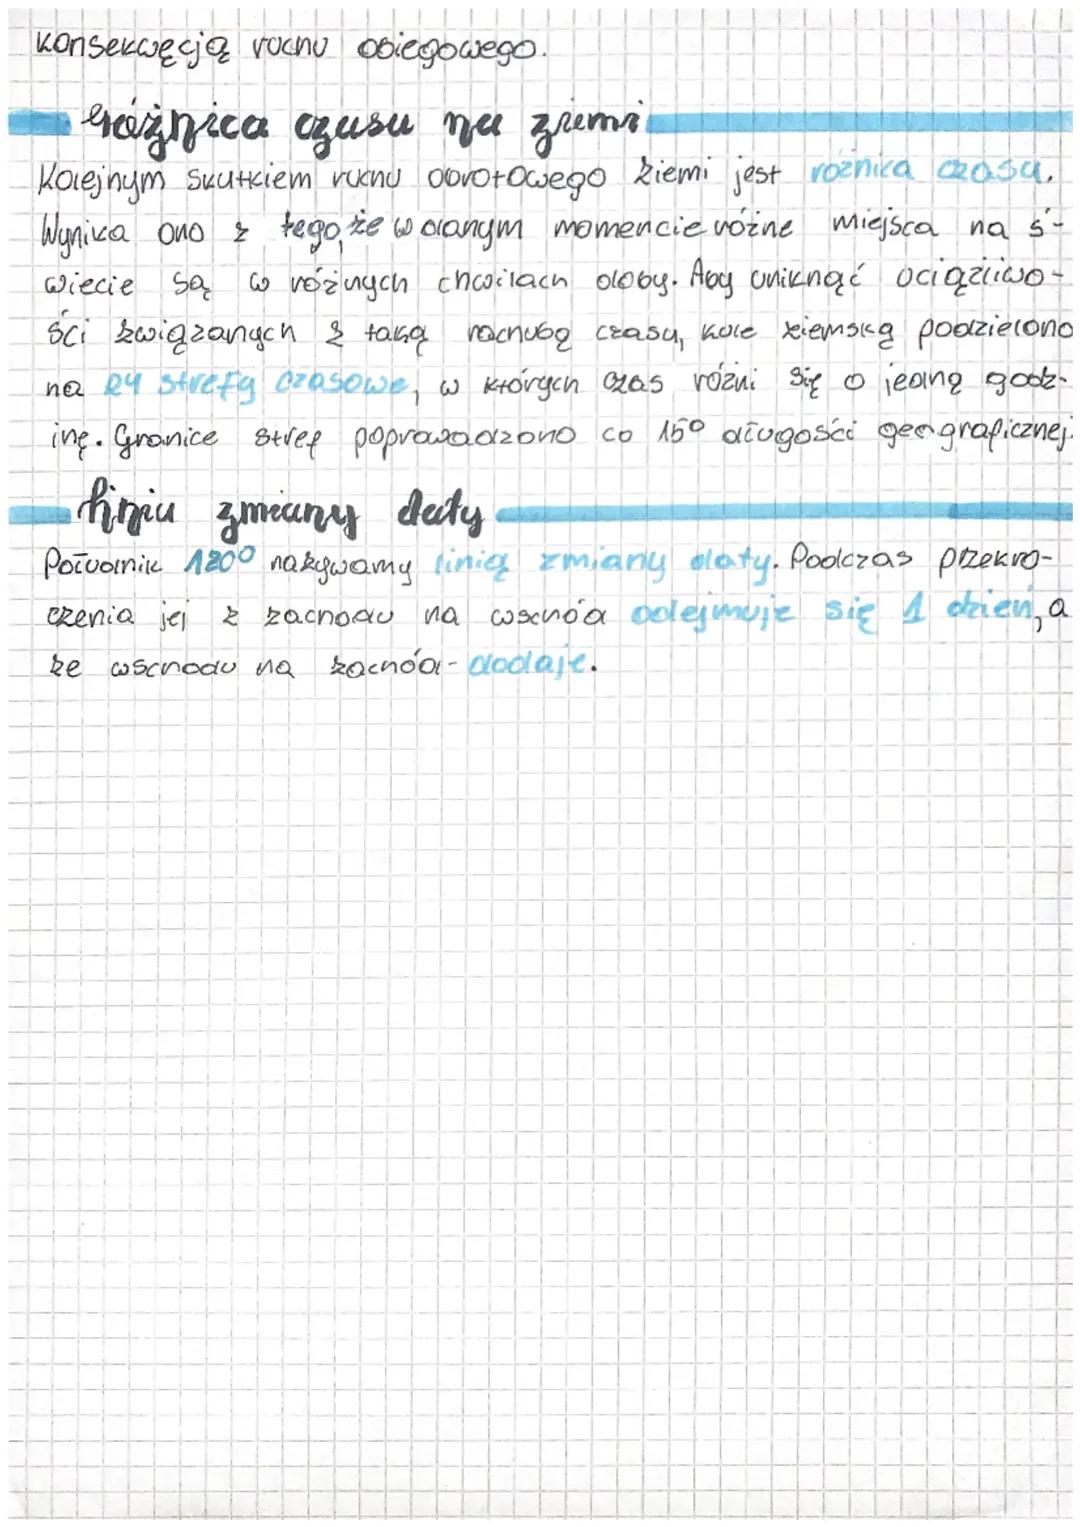 konsekwęcją ruchu obiegowego.
różnica czasu na ziemi
Kolejnym skutkiem ruchu obrotowego Ziemi jest różnica czasu.
Wynika ono z tego, że w danym momencie różne miejsca na ś-
wiecie są w różnych chwilach doby. Aby uniknąć uciążliwo-
ści związanych z taką rachubą czasu, kule ziemską podzielono
na 24 strefy czasowe, w których czas różni się o jedną godz-
inę. Granice stref poprowadzono co 15° długości geograficznej.
linia zmiany daty
Południk 180° nazywamy linią zmiany daty. Podczas przekro-
czenia jej z zachodu na wschód odejmuje się 1 dzień, a
ze wschodu na zachód - dodaje.